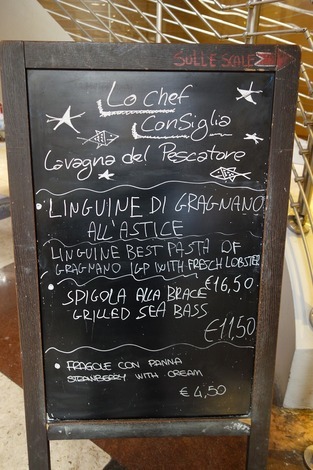 SULLE SCALE
Lo chef
conSiglia
Lavagna del Pescatore
LINGUINE DI GRAGNANO
ALL'ASTICE
LINGUINE BEST PASTA OF
GRAGNANO IGP WITH FRESCH LOBSTER
€16,50
SPIGOLA ALLA BRACE
GRILLED SEA BASS
€11,50
FRAGOLE CON PANNA
STRAWBERRY WITH CREAM
€4,50